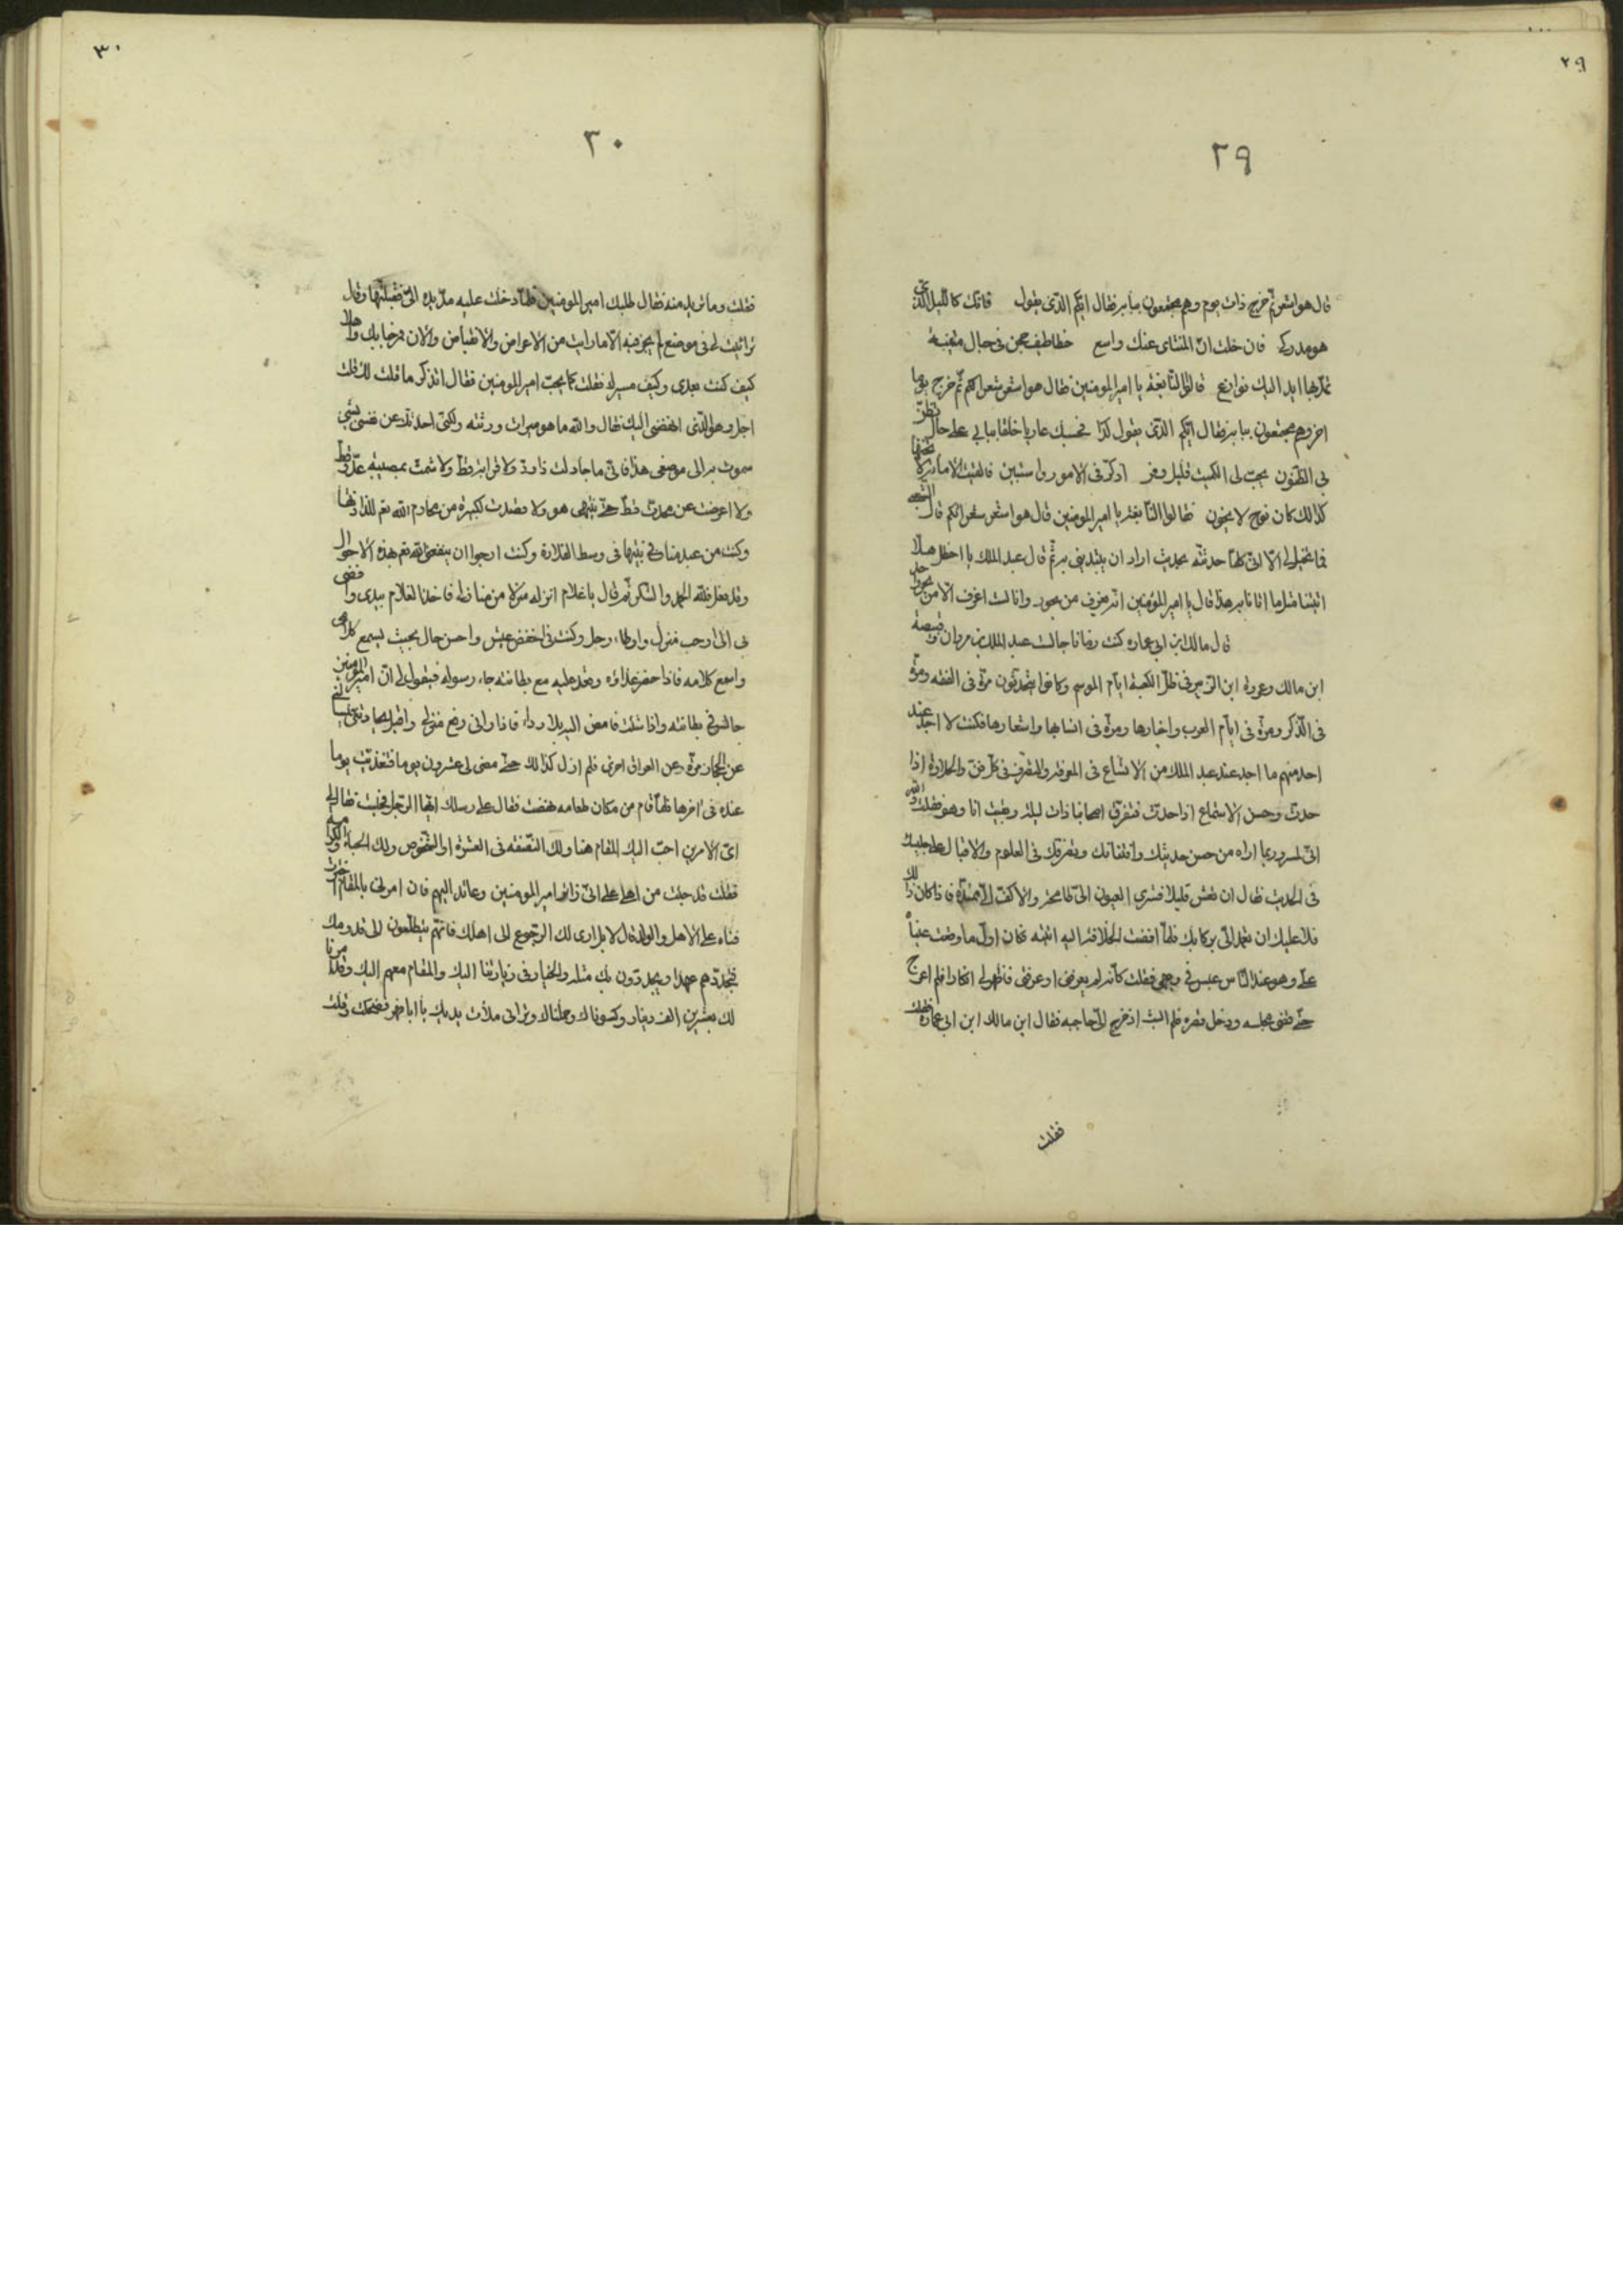 ٢٩
٢٩
قال هو اشعر ثم خرج ذات يوم وهم مجتمعون ببابه فقال ايكم الذى يقول فانك كالليل الذى
هو مدركى فان خلت انّ المنتاى عنك واسع خطاطيف حجن فى حبال متينة
تمدّ بها ايد اليك نوازع قالوا النابغة يا امير المومنين قال هو اشعر شعرائكم ثم خرج يوما
اخر وهم مجتمعون ببابه فقال ايكم الذى يقول
كذلك كان نوح لا يخون فقالوا النابغة يا امير المومنين قال هو اشعر شعرائكم قال الشعبى
فما تخيل لى الا انى كلما حدثته بحديث اراد ان يبتدينى به ثم قال عبد الملك يا اخطل هلا
قال مالك ابن ابى عماره كنت رمانا جالست عبد الملك بن مروان وقبيصة
ابن مالك وعروة ابن الزبير فى ظلّ الكعبة ايام الموسم وكانوا يتحدثون مرّة فى الفقه ومرّة
فى الذكر ومرّة فى ايّام العرب واخبارها ومرّة فى انسابها واشعارها فكنت لا اجد عند
احد منهم ما اجد عند عبد الملك من الاتساع فى المعرفة والتصرف فى كل فن والحلاوة اذا
حدث وحسن الاستماع اذا حدث فتفرق اصحابنا ذات ليلة وبقيت انا وهو فقلت والله
انى لمسرور بما اراه من حسن حديثك والتفاتك وتصرفك فى العلوم والاقبال على جليسك
فى الحديث فقال ان تعش قليلا فسترى العيون الىّ طامحة والاكف الىّ ممتدّة فاذا كان ذلك
فلا عليك ان تعمد الىّ بركابك فلما افضت الخلافة اليه اتيته فكان اول ما وقعت عينا
علىّ وهو عند الناس عبس فى وجهى فقلت كانه لم يعرفنى او عرفنى فاظهر لى انكارا فلم ابرح
حتى قضى مجلسه ودخل قصره فلم البث اذ خرج الىّ حاجبه فقال اين مالك ابن ابى عمارة فقلت
فقلت
٣٠
٣٠
فقلت وما تريد منه فقال طلبك امير المومنين فلما دخلت عليه مدّ يده الىّ فقبلتها وقال
ترائيت لى فى موضع لم يجز فيه الا ما رايت من الاعراض والانقباض والان مرحبا بك واهلا
كيف كنت بعدى وكيف مسيرك فقلت كما يحبّ امير المومنين فقال اتذكر ما قلت لك قلت
اجل وهو الذى انهضنى اليك فقال والله ما هو ميراث ورثته ولكنى احدثك عن نفسى بشىء
سموت به الى موضعى هذا فانى ما جادلت ذا ودّ ولا قرابة قطّ ولا شمتّ بمصيبة عدوّ قط
ولا اعرضت عن محدّث قطّ حتى ينتهى هو ولا قصدت لكبيرة من محارم الله تع للذاذتها
وكنت من عبد مناف فى بيتها فى وسط القلادة وكنت ارجوا ان يرفعنى الله تع بهذه الاحوال
وقد فعل فلله الحمد والشكر ثم قال يا غلام انزله منزلا من منازلنا فاخذ الغلام بيدى وافضى
بى الى ارحب منزل واوطاء رحل وكنت فى اخفض عيش واحسن حال بحيث يسمع كلامى
واسمع كلامه فاذا حضر غداؤه وقعد عليه مع بطانته جاء رسوله فيقول لى ان امير المومنين
جالس فى بطانته واذا شئت فامض اليه بلا رداء فاذا رانى رفع منزلى واقبل بمحادثتى يسالنى
عن الحجاز مرّة وعن العراق اخرى فلم ازل كذلك حتى مضى لى عشرون يوما فتغدّيت يوما
عنده فى اخرها فلما قام من مكان طعامه نهضت فقال على رسلك ايها الرجل فجلست فقال لى
اىّ الامرين احبّ اليك المقام هنا ولك النصفة فى العشرة او الشخوص ولك الحباء والكرامة
فقلت قد جئت من اهلى على انىّ زائر امير المومنين وعائد اليهم فان امرنى بالمقام اخترت
فناءه على الاهل والولد قال لا بل ارى لك الرجوع الى اهلك فانهم يتطلعون الى قدومك
فتجدّد بهم عهدا ويجدّدون بك مثله والخيار فى زيارتنا اليك والمقام معهم اليك وقد امرنا
لك بعشرين الف دينار وكسوناك وحملناك وترانى ملأت يديك يا ابا نصر فضحك وقلت